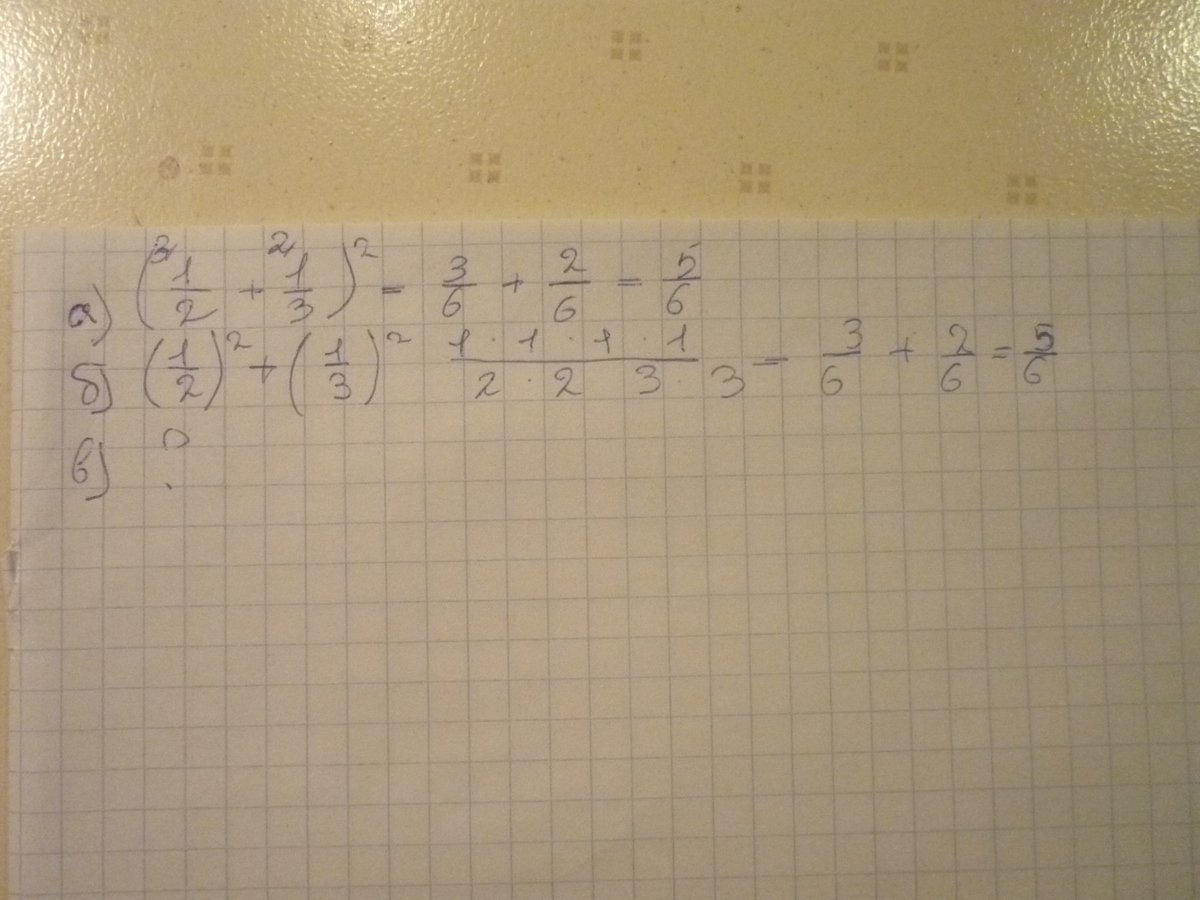 а) (³1/2 + ²1/3)² = 3/6 + 2/6 = 5/6
б) (1/2)² + (1/3)² 1 · 1 · 1 · 1 / 2 · 2 · 3 · 3 = 3/6 + 2/6 = 5/6
в) ?